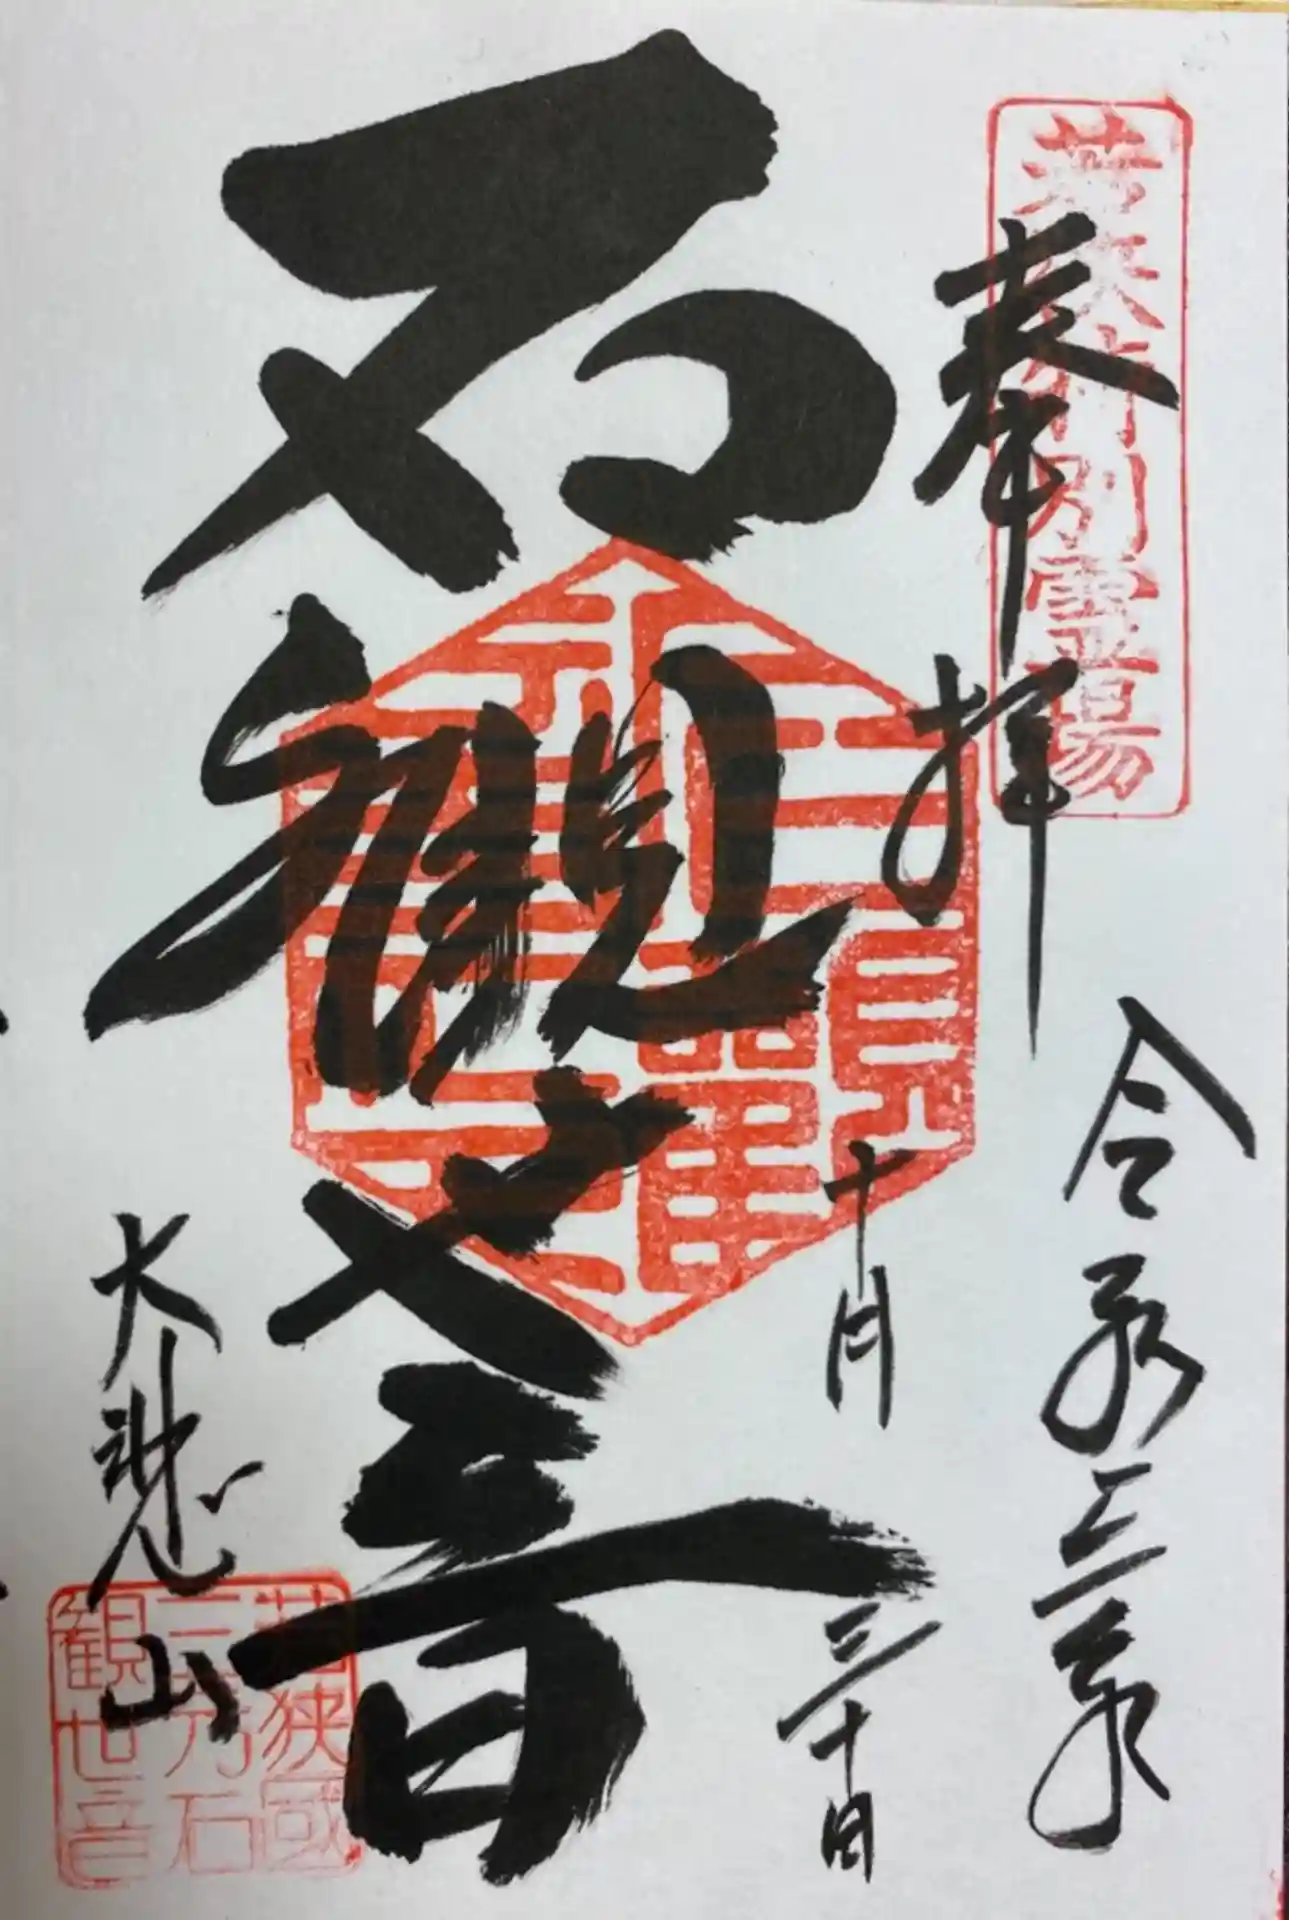 若狭特別霊場
奉拝
令和 年
十月三十日
石観世音
大悲山
若狭國
三方石
観世音